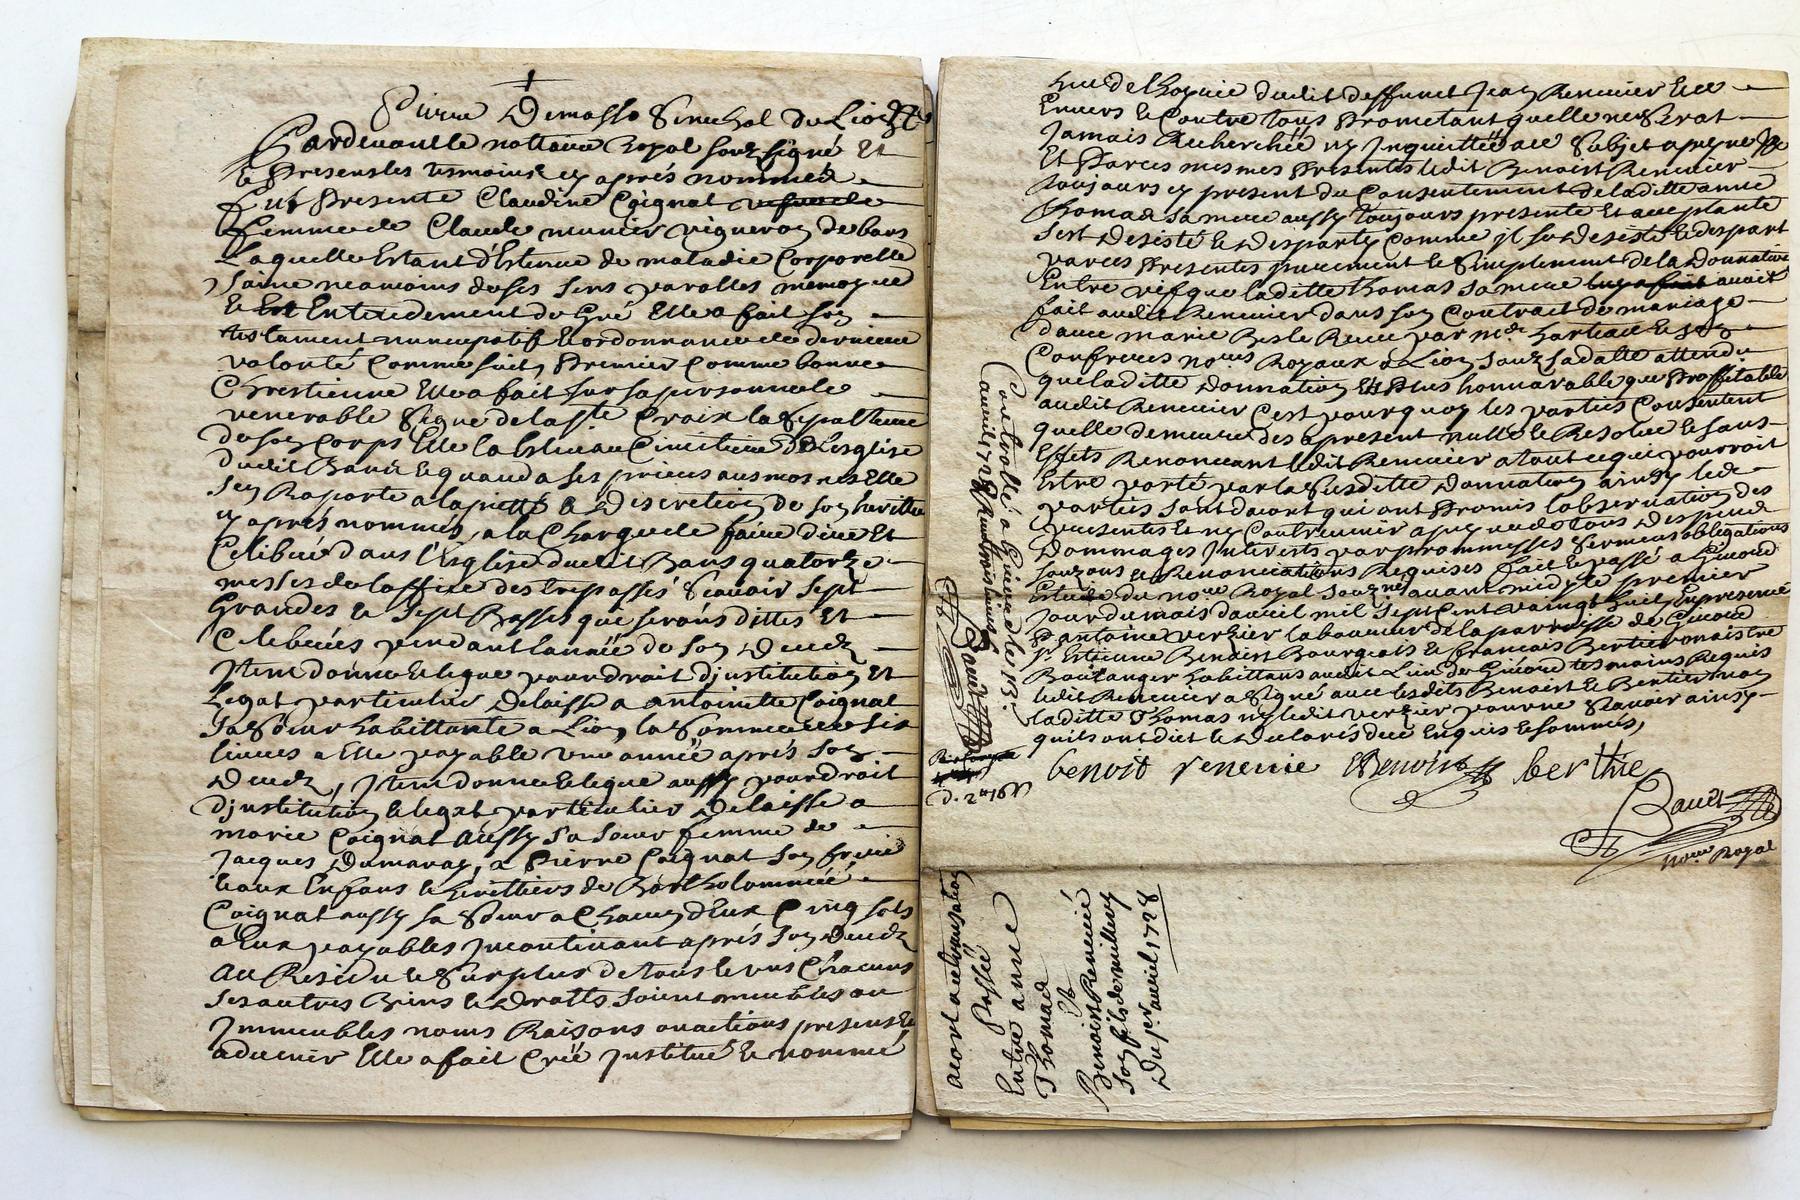 Pierre Demasso Senechal de Lion
Pardevant le nottaire Royal souzsigné Et
le Presens les tesmoins cy aprés nommed
Fut Presente Claudine Coignat
femme de Claude munier vigneron de bans
Laquelle Estant d'Etenue de maladie Corporelle
saine neamoins de ses sens parolles memoyre
le Entendement de Gré Elle a fait son
testament nuncupatif Et ordonnance de derniere
volonté comme suit, Premier comme bonne
Chrestienne Elle a fait sur sa personne le
venerable signe de la ste Croix la sepulture
de son Corps Elle la Esleue au Cimitiere De L'esglise
dudit Bans le quand a ses prieres aumosnes Elle
sen Raporte a la pietté & discretion de son heritier
cy aprés nommés, a la charge de faire dire Et
Celebrer dans l'Esglise dudit Bans quatorze
messes de loffice des trepassés scauoir sept
Grandes le sept Basses que serons dittes Et
Celebrées pendant lannée de son decedz
Jtem donne le legue pour droit djnstitution Et
Legat particulier delaisse a antoinette Coignat
sa soeur habittante a Lion, la somme de six
liures a Elle payable vne année aprés son
Decedz, Jtem donne le legue aussy pour droit
djnstitution le legat particulier delaisse a
marie Coignat aussy sa soeur femme de
Jacques Dumaray, a Pierre Coignat son frere
le aux Enfans le heritiers de Bartholommée
Coignat aussy sa soeur a Chacun d'Eux Cinq sols
a Eux payables Jncontinant aprés son decedz
Au Residu le surplus de tous le vns Chacuns
ses autres Biens le Droits soient meubles ou
Jmmeubles noms Raisons ou actions presens Et
aduenir Elle a fait Créé Jnstitué le nommé
hoirie dudit deffunct Jean Renevier
Enuers le Contre tous Prometant quelle ne serat
Jamais Recherchée ny Jnquiettée a ce subjet a peyne
Et Par ces mesmes Presentes ledit Benoist Renevier
toujours cy present du Consentement de laditte anne
thomas sa mere aussy toujours presente Et acceptante
sest desisté le disparty comme jl se desiste le despart
par ces Presentes purement le simplement de la Donnation
Entre vifs que laditte thomas sa mere auoit
fait audit Renevier dans son Contrat de mariage
dauec marie
Confreres nores Royaux a Lion souz sa datte attendu
que laditte Donnation Et Plus honnorable que Proffitable
audit Renevier C'est pourquoy les parties Consentent
quelle demeure des apresent nulle le Resolue le sans
Effets Renonceant ledit Renevier a tout ce que pourroit
Estre porté par la susditte Donnation ainsy les
parties sont dacort qui ont Promis lobservation des
Presentes Et ny Contreuenir a peyne de tous despens
Dommages Jnterests par prommesses serment obligations
souz ons le Renonciations Requises fait le passé a Giuord
Estude du nore Royal souzné auant midy le premier
Jour du mois dauril mil sept Cent vaingt huit En presence
d'antoine verzier laboureur de la parroisse de Giuord
sr Estienne Benoist Bourgeois le francois Bertier maistre
Boulanger habittans audit Lieu de Giuord tesmoins Requis
ledit Renevier a signé auec lesdits Benoist le Bertier non
laditte Thomas ny ledit verzier pour ne scauoir ainsy
quils ont dict le declarés duë Enquis le sommés,
benoit renevie EBenoist berthie
Baudt
nore Royal
Controllé a Giuord le
auril 1728
Baudt
acort
Passée
Entre anne
Thomas
Et
Benoist Renevié
son fils de millery
Du 1er auril 1728